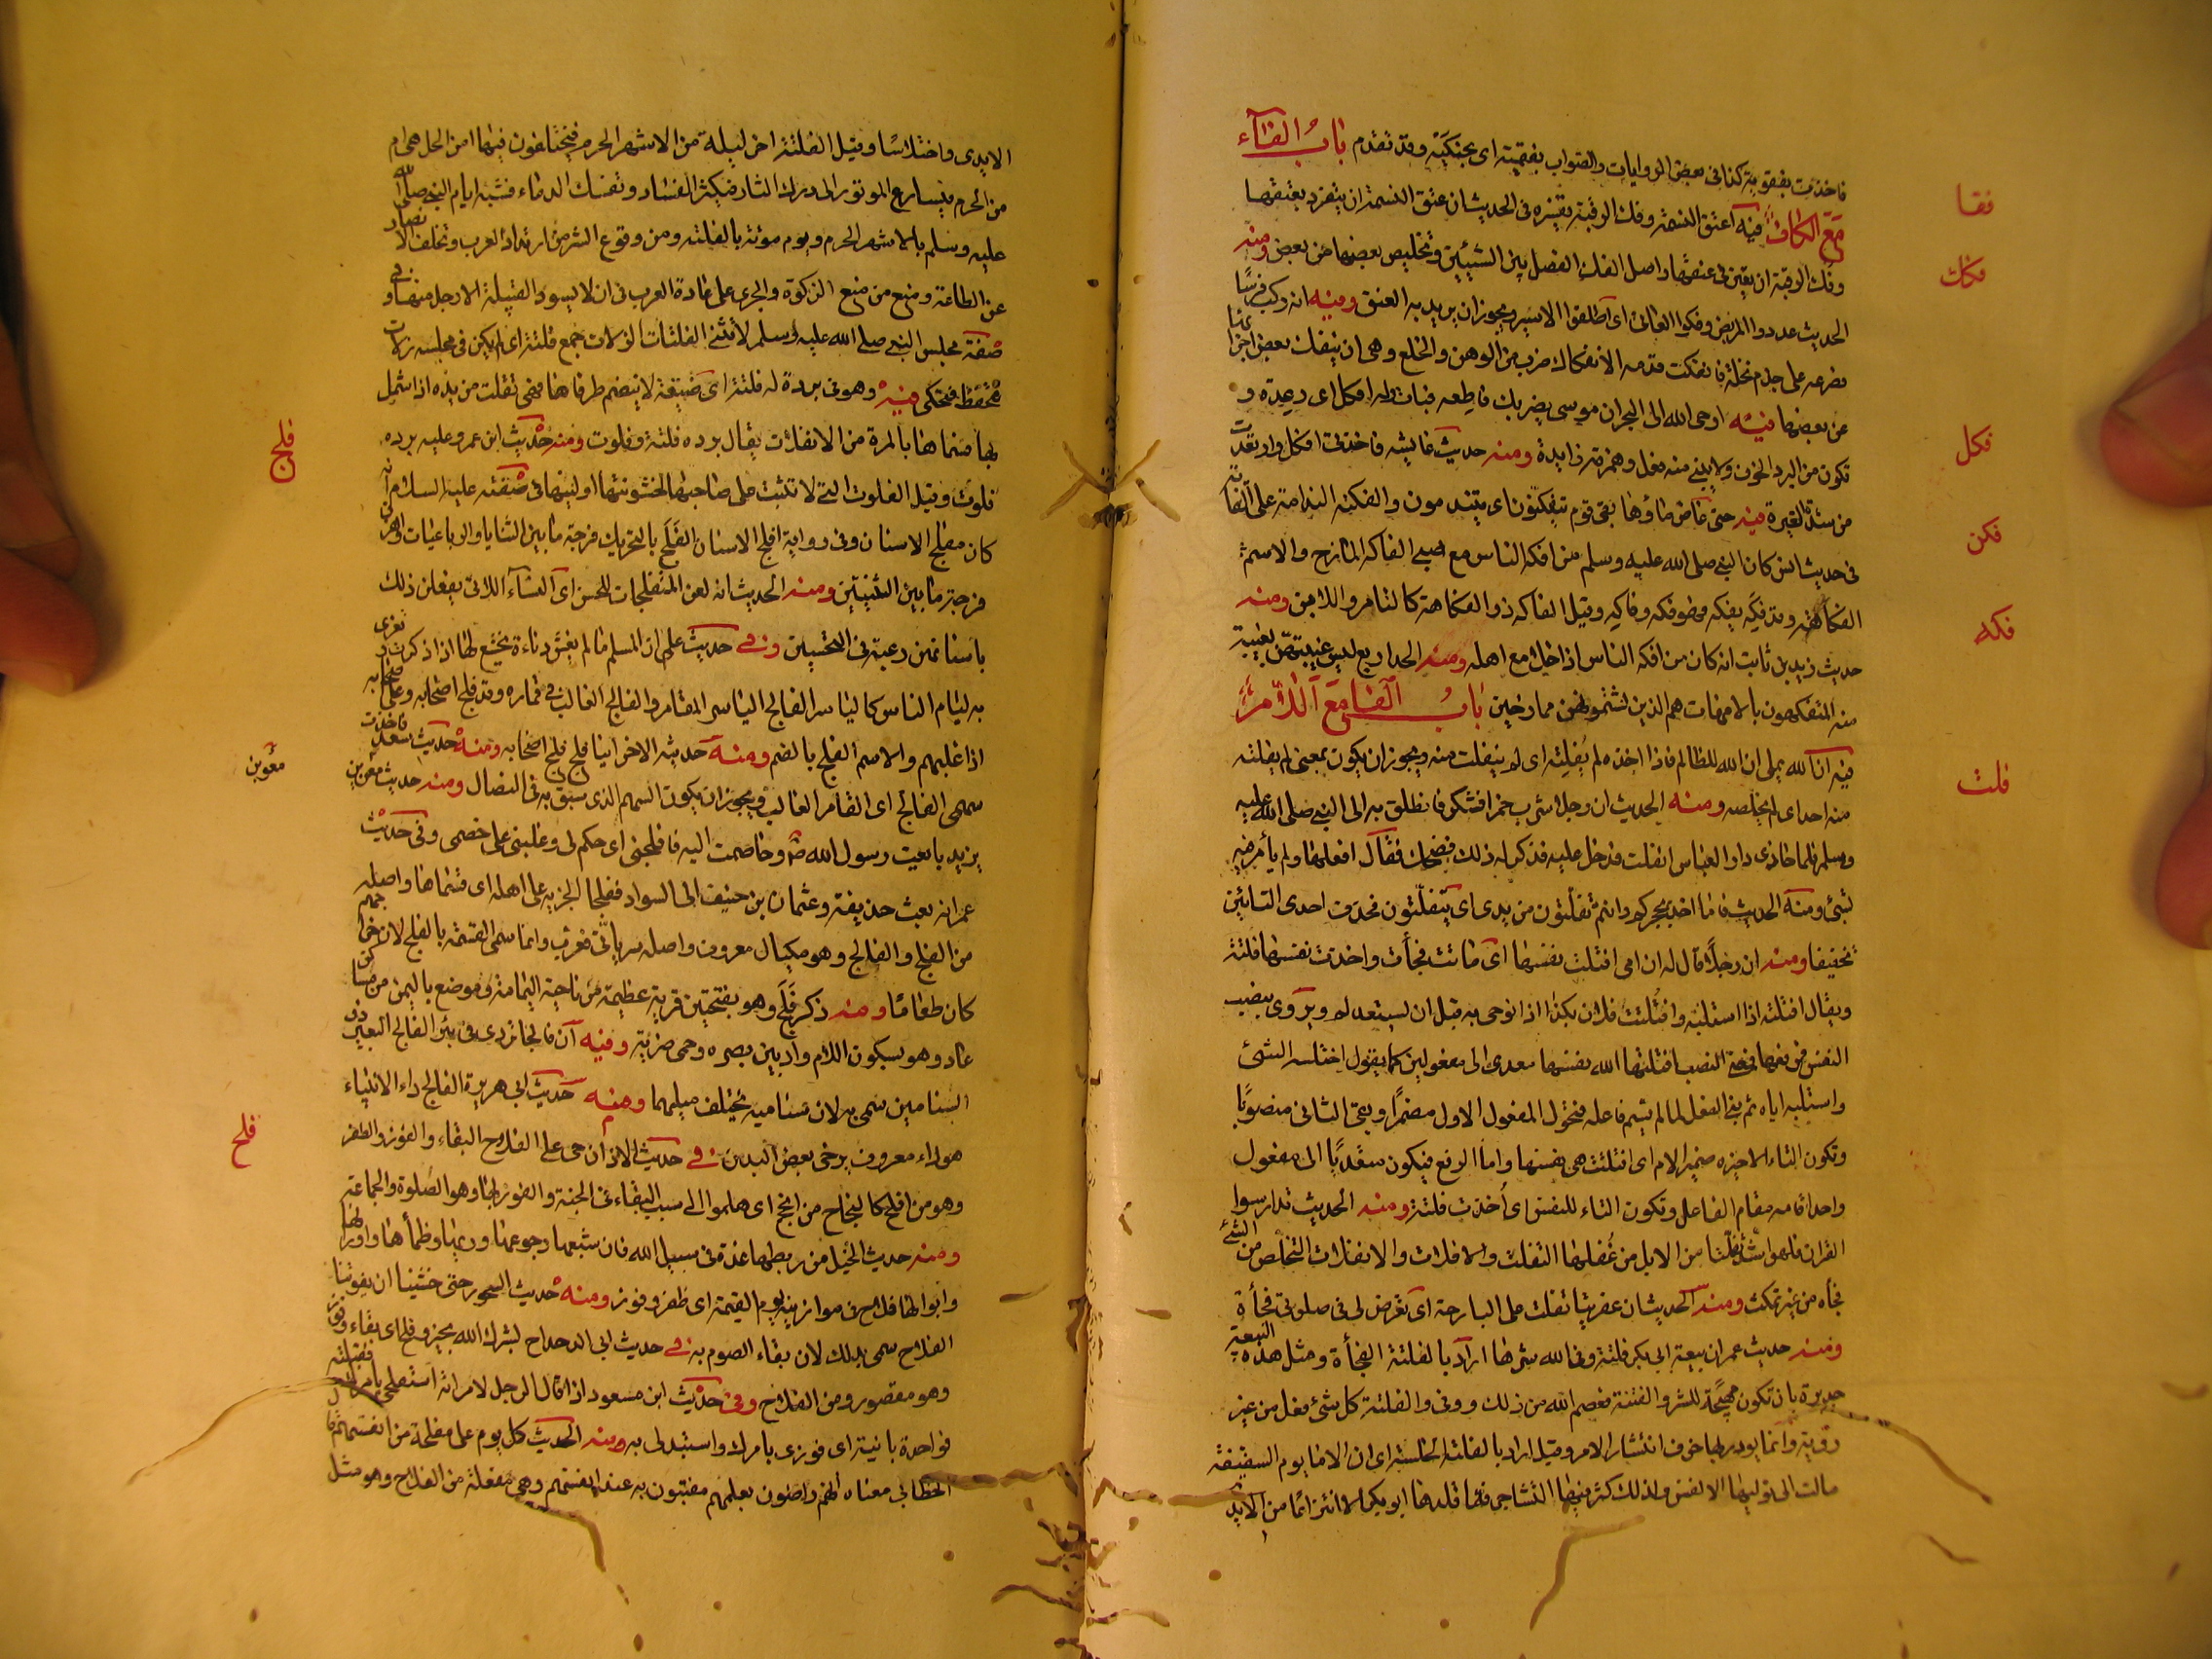 فاخذت بفقويه كذا فى بعض الروايات والصواب بفقميه اى بحنكيه وقد تقدم باب الفآء
فقا
مع الكاف فيه اعتق النسمة وفك الرقبة تفسيره فى الحديث ان عتق النسمة ان ينفرد بعتقها
وفك الرقبة ان يعين فى عتقها واصل الفك الفصل بين الشيئين وتخليص بعضها من بعض ومنه
فكك
الحديث عودوا المريض وفكوا العانى اى اطلقوا الاسير ويجوز ان يريد به العتق ومنه انه ركب فرسًا
فصرعه على جذم نخلة فانفكت قدمه الانفكاك ضرب من الوهن والخلع وهى ان ينفك بعض اجزائها
عن بعضها فيه اوحى الله الى البحر ان موسى يضربك فاطعه فبات وله افكل اى رعدة و
فكل
تكون من البرد والخوف ولا يبنى منه فعل وهمزته زايدة ومنه حديث عايشه فاخذنى افكل وارتعدت
من شدة الغيرة فيه حتى غاض ماؤها بقى قوم يتفكنون اى يتندمون والفكنة الندامة على الفائت
فكن
فى حديث انس كان النبى صلى الله عليه وسلم من افكه الناس مع صبى الفاكه المازح والاسم
فكه
الفكاهة وقد فكه يفكه فهو فكه وفاكه وقيل الفاكه ذو الفكاهة كالتامر واللابن ومنه
حديث زيد بن ثابت انه كان من افكه الناس اذا خلا مع اهله ومنه الحديث اربع ليس غيبتهن بغيبة
منه المتفكهون بالامهات هم الذين يشتمونهن ممازحين باب الفا مع اللام
فيه ان الله يملى للظالم فاذا اخذه لم يفلته اى لم ينفلت منه ويجوز ان يكون بمعنى لم يفلته
فلت
منه احد اى لم يخلصه ومنه الحديث ان رجلا شرب خمرا فسكر فانطلق به الى النبى صلى الله عليه
وسلم فلما حاذى دار العباس انفلت فدخل عليه فذكر له ذلك فضحك فقال افعلها ولم يأمر فيه
بشئ ومنه الحديث فانا اخذ بحجزكم وانتم تفلتون من يدى اى تتفلتون فحذفت احدى التائين
تخفيفا ومنه ان رجلا قال له ان امى افتلتت نفسها اى ماتت فجأت واخذت نفسها فلتة
ويقال افتلته اذا استلبه وافتلت فلان بكذا اذا فوجى به قبل ان يستعد له ويروى بنصب
النفس ورفعها فمعنى النصب افتلتها الله نفسها معدى الى مفعولين كما يقول اختلسه الشئ
واستلبه اياه ثم بنى الفعل لما لم يسم فاعله فتحول المفعول الاول مضمرًا وبقى الثانى منصوبًا
وتكون التاء الاخيره ضمير الام اى افتلتت هى نفسها واما الرفع فيكون متعديًا الى مفعول
واحد اقامه مقام الفاعل وتكون التاء للنفس اى اخذت فلتة ومنه الحديث تدارسوا
القران فلهو اشد تفلتا من الابل من عقلها التفلت والافلات والانفلات التخلص من الشئ
فجأه من غير تمكث ومنه الحديث ان عفريتا تفلت على البارحة اى تعرض لى فى صلوتى فجأة
ومنه حديث عمر ان بيعة ابى بكر فلتة وقى الله شرها اراد بالفلتة الفجأة ومثل هذه البيعة
جديرة بان تكون مهيجة للشر والفتنة فعصم الله من ذلك ووقى والفلتة كل شئ فعل من غير
روية وانما بودر بها خوف انتشار الامر وقيل اراد بالفلتة الخلسة اى ان الاما يوم السقيفة
مالت الى توليها الانفس ولذلك كثر فيها التشاجر فما قلدها ابو بكر الا انتزاعًا من الايدى
الايدى واختلاسًا وقيل الفلتة اخر ليلة من الاشهر الحرم فيختلفون فيها امن الحل هى ام
من الحرم فيسارع الموتور الى درك الثار فيكثر الفساد وتسفك الدماء فشبه ايام النبى صلى الله
عليه وسلم بالاشهر الحرم ويوم موته بالفلتة ومن وقوع الشر من ارتداد العرب وتخلف الانصار
عن الطاعة ومنع من منع الزكوة والجرى على عادة العرب فى ان لا يسود القبيلة الا رجل منها وفى
صفة مجلس النبى صلى الله عليه وسلم لا تنثى الفلتات الزلات جمع فلتة اى لم يكن فى مجلسه زلات
فتحفظ فتحكى فيه وهو فى بردة له فلتة اى ضيقة لا ينضم طرفاها فهى تفلت من يده اذا اشتمل
بها فسماها بالمرة من الانفلات يقال برده فلتة وفلوت ومنه حديث ابن عمر وعليه برده
فلج
فلوت وقيل الفلوت التى لا تثبت على صاحبها لخشونتها او لينها فى صفته عليه السلام انه
كان مفلج الاسنان وفى رواية افلج الاسنان الفلج بالتحريك فرجة ما بين الثنايا والرباعيات والفرق
فرجة ما بين الثنيتين ومنه الحديث انه لعن المتفلجات للحسن اى النساء اللاتى يفعلن ذلك
باسنانهن رغبة فى التحسين وفى حديث على ان المسلم ما لم يغش دناءة يخشع لها اذا ذكرت وتغرى
به ليام الناس كالياسر الفالج الياسر المقامر والفالج الغالب فى قماره وقد فلج اصحابه وعلى اصحابه
اذا غلبهم والاسم الفلج بالضم ومنه حديثه الاخر اينا فلج فلج اصحابه ومنه حديث سعد فاخذت
سهمى الفالج اى القامر الغالب ويجوز ان يكون السهم الذى سبق به فى النضال ومنه حديث معن بن
معوبن
يزيد بايعت رسول الله وخاصمت اليه فافلجنى اى حكم لى وغلبنى على خصمى وفى حديث
عمر انه بعث حذيفة وعثمان بن حنيف الى السواد ففلجا الجزيه على اهله اى قسماها واصله
من الفلج والفالج وهو مكيال معروف واصله سريانى فعرب وانما سمى القسمة بالفلج لان خراجهم
كان طعامًا ومنه ذكر فلج وهو بفتحتين قرية عظيمة من ناحية اليمامة وموضع باليمن من مساكن
عاد وهو بسكون اللام واد بين بصره وحمى ضرية وفيه ان فالجا تردى فى بئر الفالج البعير ذو
السنامين سمى به لان سناميه يختلف ميلهما ومنه حديث ابى هريرة الفالج داء الانبياء
فلح
هو داء معروف يرخى بعض البدن فى حديث الاذان حى على الفلاح البقاء والفوز والظفر
وهو من افلح كالنجاح من انجح اى هلموا الى سبب البقاء فى الجنة والفوز بها وهو الصلوة والجماعة
ومنه حديث الخيل من ربطها عدة فى سبيل الله فان شبعها وجوعها وريها وظمأها وارواثها
وابوالها فلاح فى موازينه يوم القيمة اى ظفر وفوز ومنه حديث السحور حتى خشينا ان يفوتنا
الفلاح سمى بذلك لان بقاء الصوم به فى حديث ابى الدحداح بشرك الله بخير وفلح اى بقاء وفوز
وهو مقصور ومن الفلاح وفى حديث ابن مسعود اذا قال الرجل لامراته استفلحى بامرك فقبلته
فواحدة باينة اى فوزى بامرك واستبدلى به ومنه الحديث كل يوم على مفلحة من انفسهم قال
الخطابى معناه انهم راضون بعلمهم مغتبطون به عند انفسهم وهى مفعلة من الفلاح وهو مثل